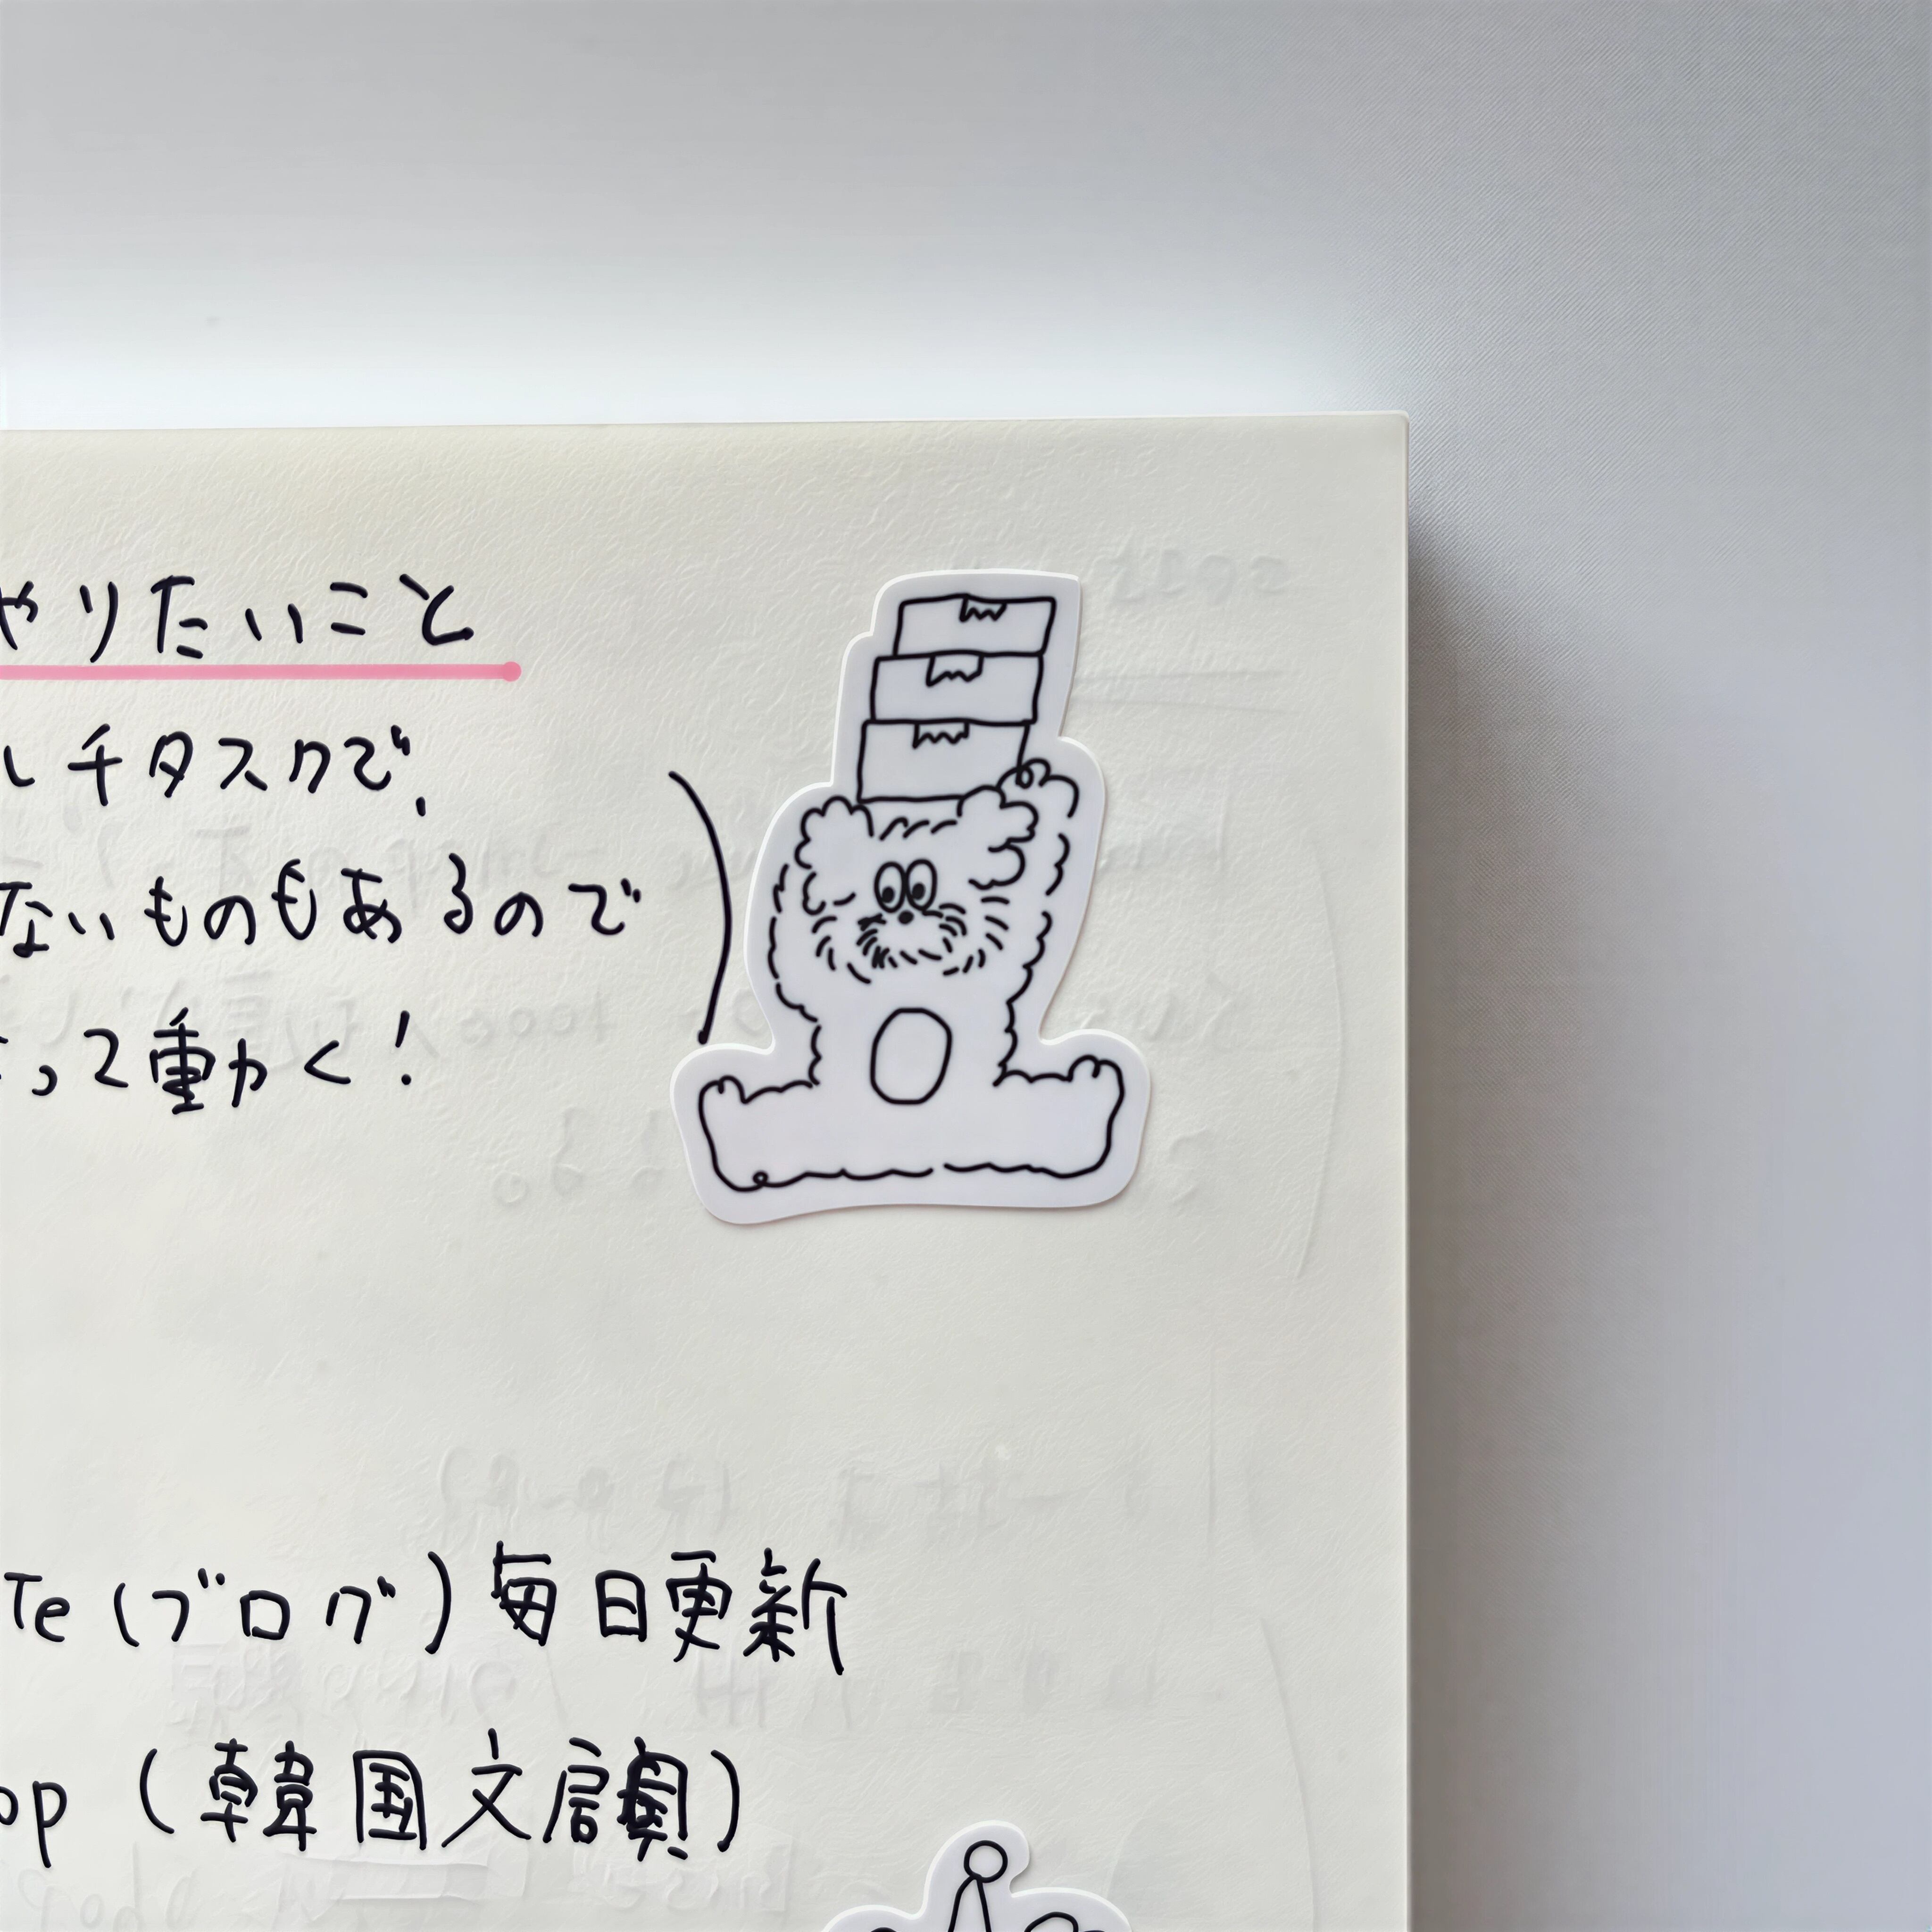 やりたいこと
ルチタスクで、
ないものもあるので
って動く!
Te (ブログ) 毎日更新
op (韓国文房具)